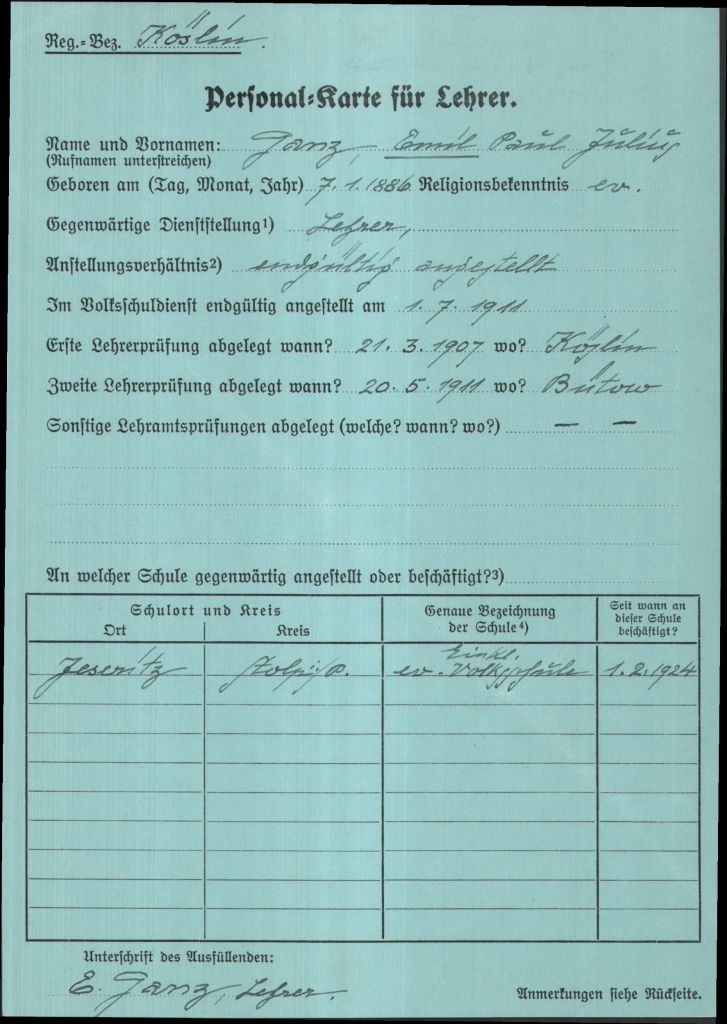 Reg.-Bez. Köslin.
Personal-Karte für Lehrer.
Name und Vornamen: Ganz, Emil Paul Julius
(Rufnamen unterstreichen)
Geboren am (Tag, Monat, Jahr) 7. 1. 1886 Religionsbekenntnis ev.
Gegenwärtige Dienststellung¹) Lehrer,
Anstellungsverhältnis²) endgültig angestellt
Im Volksschuldienst endgültig angestellt am 1. 7. 1911
Erste Lehrerprüfung abgelegt wann? 21. 3. 1907 wo? Köslin
Zweite Lehrerprüfung abgelegt wann? 20. 5. 1911 wo? Bütow
Sonstige Lehramtsprüfungen abgelegt (welche? wann? wo?) — —
An welcher Schule gegenwärtig angestellt oder beschäftigt?³)
Schulort und Kreis
Ort Kreis
Genaue Bezeichnung
der Schule⁴)
Seit wann an
dieser Schule
beschäftigt?
Einkl.
Jeseritz Stolp i/P. ev. Volksschule 1. 2. 1924
Unterschrift des Ausfüllenden:
E. Ganz, Lehrer.
Anmerkungen siehe Rückseite.